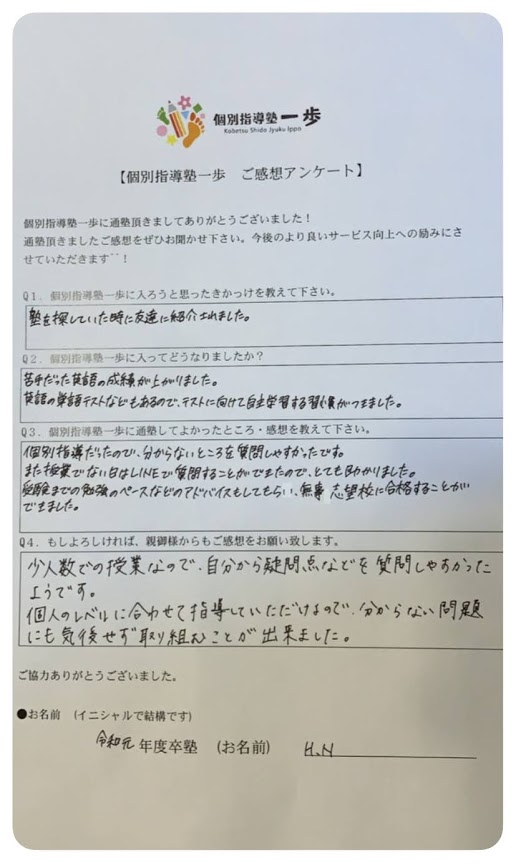 個別指導塾一歩
Kobetsu Shido Jyuku Ippo
【個別指導塾一歩　ご感想アンケート】
個別指導塾一歩に通塾頂きましてありがとうございました！
通塾頂きましたご感想をぜひお聞かせ下さい。今後のより良いサービス向上への励みにさ
せていただきます^^！
Q1．個別指導塾一歩に入ろうと思ったきかっけを教えて下さい。
塾を探していた時に友達に紹介されました。
Q2．個別指導塾一歩に入ってどうなりましたか？
苦手だった英語の成績が上がりました。
英語の単語テストなどもあるので、テストに向けて自主学習する習慣がつきました。
Q3．個別指導塾一歩に通塾してよかったところ・感想を教えて下さい。
個別指導だったので、分からないところを質問しやすかったです。
また授業でない日はLINEで質問することができたので、とても助かりました。
受験までの勉強のペースなどのアドバイスもしてもらい、無事 志望校に合格することが
できました。
Q4．もしよろしければ、親御様からもご感想をお願い致します。
少人数での授業なので、自分から疑問点などを質問しやすかった
ようです。
個人のレベルに合わせて指導していただけるので、分からない問題
にも気後せず取り組むことが出来ました。
ご協力ありがとうございました。
●お名前　(イニシャルで結構です)
令和元年度卒塾　(お名前)　H.N